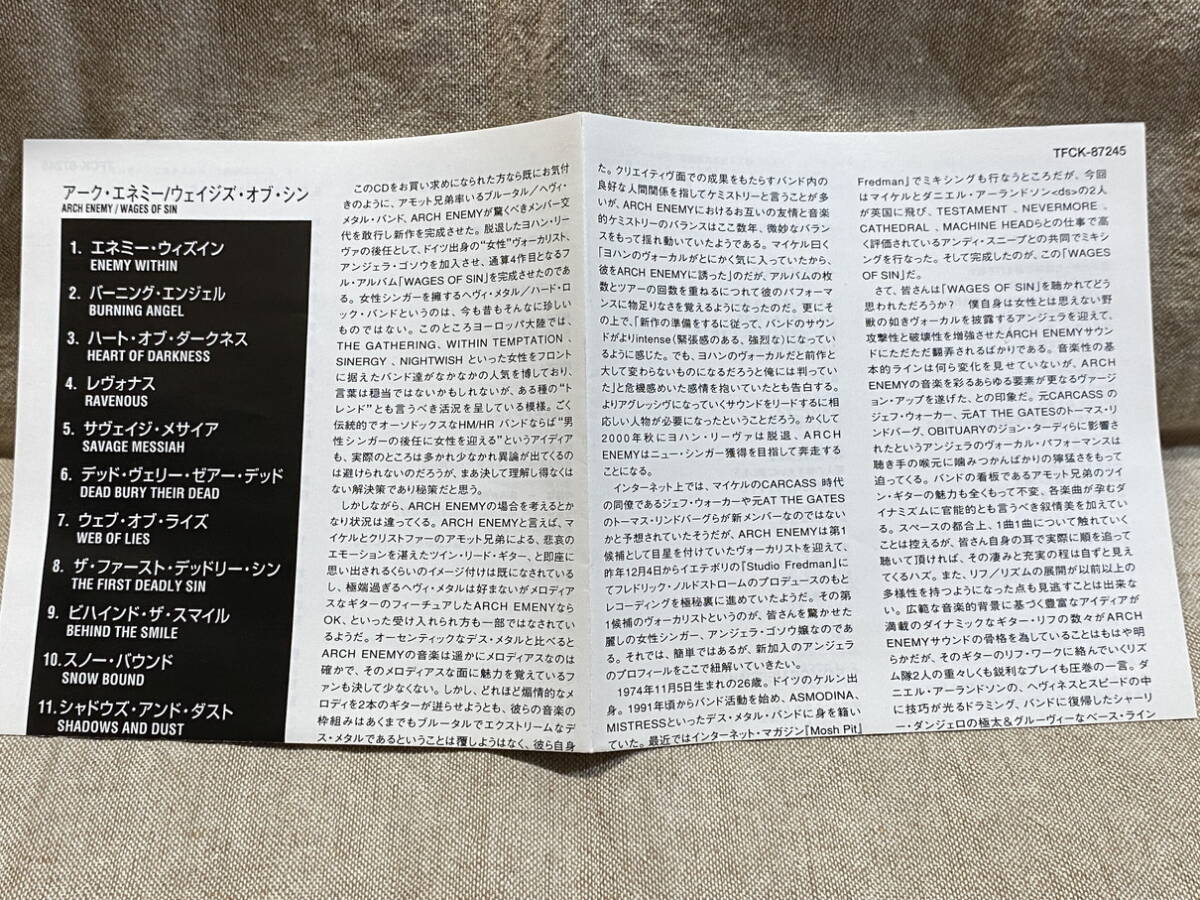 アーク・エネミー/ウェイジズ・オブ・シン
ARCH ENEMY / WAGES OF SIN
1. エネミー・ウィズイン
ENEMY WITHIN
2. バーニング・エンジェル
BURNING ANGEL
3. ハート・オブ・ダークネス
HEART OF DARKNESS
4. レヴォナス
RAVENOUS
5. サヴェイジ・メサイア
SAVAGE MESSIAH
6. デッド・ヴェリー・ゼアー・デッド
DEAD BURY THEIR DEAD
7. ウェブ・オブ・ライズ
WEB OF LIES
8. ザ・ファースト・デッドリー・シン
THE FIRST DEADLY SIN
9. ビハインド・ザ・スマイル
BEHIND THE SMILE
10. スノー・バウンド
SNOW BOUND
11. シャドウズ・アンド・ダスト
SHADOWS AND DUST
このCDをお買い求めになられた方なら既にお気付
きのように、アモット兄弟率いるブルータル/ヘヴィ・
メタル・バンド、ARCH ENEMYが驚くべきメンバー交
代を敢行し新作を完成させた。脱退したヨハン・リー
ヴァの後任として、ドイツ出身の“女性”ヴォーカリスト、
アンジェラ・ゴソウを加入させ、通算4作目となるフ
ル・アルバム「WAGES OF SIN」を完成させたのであ
る。女性シンガーを擁するヘヴィ・メタル/ハード・ロ
ック・バンドというのは、今も昔もそんなに珍しい
ものではない。このところヨーロッパ大陸では、
THE GATHERING、WITHIN TEMPTATION、
SINERGY、NIGHTWISH といった女性をフロント
に据えたバンド達がなかなかの人気を博しており、
言葉は穏当ではないかもしれないが、ある種の“ト
レンド”とも言うべき活況を呈している模様。ごく
伝統的でオーソドックスなHM/HR バンドならば“男
性シンガーの後任に女性を迎える”というアイディア
も、実際のところは多かれ少なかれ異論が出てくるの
は避けられないのだろうが、まあ決して理解し得なくは
ない解決策であり秘策だと思う。
しかしながら、ARCH ENEMYの場合を考えるとか
なり状況は違ってくる。ARCH ENEMYと言えば、マ
イケルとクリストファーのアモット兄弟による、悲哀の
エモーションを湛えたツイン・リード・ギター、と即座に
思い出されるくらいのイメージ付けは既になされている
し、極端過ぎるヘヴィ・メタルは好まないがメロディア
スなギターのフィーチュアしたARCH EMENYなら
OK、といった受け入れられ方も一部ではなされてい
るようだ。オーセンティックなデス・メタルと比べると
ARCH ENEMYの音楽は遥かにメロディアスなのは
確かで、そのメロディアスな面に魅力を覚えているファ
ンも決して少なくない。しかし、どれほど煽情的なメ
ロディを2本のギターが迸らせようとも、彼らの音楽の
枠組みはあくまでもブルータルでエクストリームなデ
ス・メタルであるということは覆しようはなく、彼ら自身
た。クリエイティヴ面での成果をもたらすバンド内の
良好な人間関係を指してケミストリーと言うことが多
いが、ARCH ENEMYにおけるお互いの友情と音楽
的ケミストリーのバランスはここ数年、微妙なバラン
スをもって揺れ動いていたようである。マイケル曰く
「ヨハンのヴォーカルがとにかく気に入っていたから、
彼をARCH ENEMYに誘った」のだが、アルバムの枚
数とツアーの回数を重ねるにつれて彼のパフォーマ
ンスに物足りなさを覚えるようになったのだ。更にそ
の上で、「新作の準備をするに従って、バンドのサウン
ドがよりintense（緊張感のある、強烈な）になってい
るように感じた。でも、ヨハンのヴォーカルだと前作と
大して変わらないものになるだろうと俺には判ってい
た」と危機感めいた感情を抱いていたとも告白する。
よりアグレッシヴになっていくサウンドをリードするに相
応しい人物が必要になったということだろう。かくして
2000年秋にヨハン・リーヴァは脱退、ARCH
ENEMYはニュー・シンガー獲得を目指して奔走する
ことになる。
インターネット上では、マイケルのCARCASS 時代
の同僚であるジェフ・ウォーカーや元AT THE GATES
のトーマス・リンドバーグらが新メンバーなのではない
かと予想されていたそうだが、ARCH ENEMYは第1
候補として目星を付けていたヴォーカリストを迎えて、
昨年12月4日からイエテボリの「Studio Fredman」に
てフレドリック・ノルドストロームのプロデュースのもと
レコーディングを極秘裏に進めていたようだ。その第
1候補のヴォーカリストというのが、皆さんを驚かせた
麗しの女性シンガー、アンジェラ・ゴソウ嬢なのであ
る。それでは、簡単ではあるが、新加入のアンジェラ
のプロフィールをここで紐解いていきたい。
1974年11月5日生まれの26歳。ドイツのケルン出
身。1991年頃からバンド活動を始め、ASMODINA、
MISTRESSといったデス・メタル・バンドに身を籍い
ていた。最近ではインターネット・マガジン「Mosh Pit」
TFCK-87245
Fredman」でミキシングも行なうところだが、今回
はマイケルとダニエル・アーランドソン<ds>の2人
が英国に飛び、TESTAMENT 、NEVERMORE、
CATHEDRAL 、MACHINE HEADらとの仕事で高
く評価されているアンディ・スニープとの共同でミキシ
ングを行なった。そして完成したのが、この「WAGES
OF SIN」だ。
さて、皆さんは「WAGES OF SIN」を聴かれてどう
思われただろうか？ 僕自身は女性とは思えない野
獣の如きヴォーカルを披露するアンジェラを迎えて、
攻撃性と破壊性を増強させたARCH ENEMYサウン
ドにただただ翻弄されるばかりである。音楽性の基
本的ラインは何ら変化を見せていないが、ARCH
ENEMYの音楽を彩るあらゆる要素が更なるヴァージ
ョン・アップを遂げた、との印象だ。元CARCASS の
ジェフ・ウォーカー、元AT THE GATESのトーマス・リ
ンドバーグ、OBITUARYのジョン・ターディらに影響さ
れたというアンジェラのヴォーカル・パフォーマンスは
聴き手の喉元に噛みつかんばかりの獰猛さをもって
迫ってくる。バンドの看板であるアモット兄弟のツイ
ン・ギターの魅力も全くもって不変、各楽曲が孕むダ
イナミズムに官能的とも言うべき叙情美を加えてい
る。スペースの都合上、1曲1曲について触れていく
ことは控えるが、皆さん自身の耳で実際に順を追って
聴いて頂ければ、その凄みと充実の程は自ずと見え
てくるハズ。また、リフ/リズムの展開が以前以上の
多様性を持つようになった点も見逃すことは出来な
い。広範な音楽的背景に基づく豊富なアイディアが
満載のダイナミックなギター・リフの数々がARCH
ENEMYサウンドの骨格を為していることはもはや明
らかだが、そのギターのリフ・ワークに絡んでいくリズ
ム隊2人の重々しくも鋭利なプレイも圧巻の一言。ダ
ニエル・アーランドソンの、ヘヴィネスとスピードの中
に技巧が光るドラミング、バンドに復帰したシャーリ
ー・ダンジェロの極太＆グルーヴィーなベース・ライン